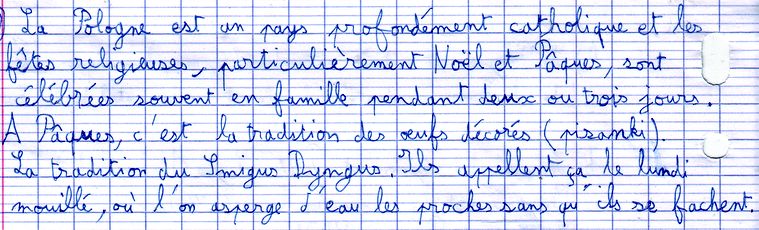 La Pologne est un pays profondément catholique et les
fêtes religieuses, particulièrement Noël et Pâques, sont
célébrées souvent en famille pendant deux ou trois jours.
A Pâques, c'est la tradition des œufs décorés (pisanki).
La tradition du Smigus Dyngus. Ils appellent ça le lundi
mouillé, où l'on asperge d'eau les proches sans qu'ils se fachent.